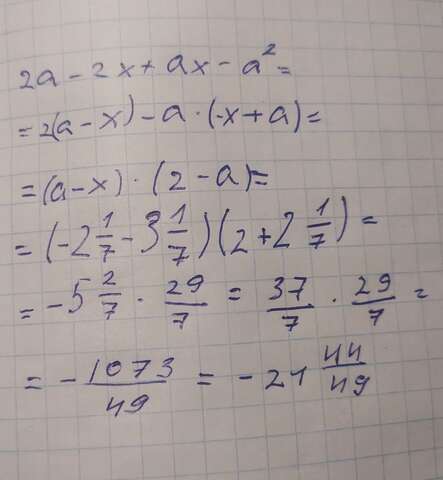 2a - 2x + ax - a² =
= 2(a - x) - a · (-x + a) =
= (a - x) · (2 - a) =
= (-2 1/7 - 3 1/7)(2 + 2 1/7) =
= -5 2/7 · 29/7 = 37/7 · 29/7 =
= - 1073/49 = -21 44/49